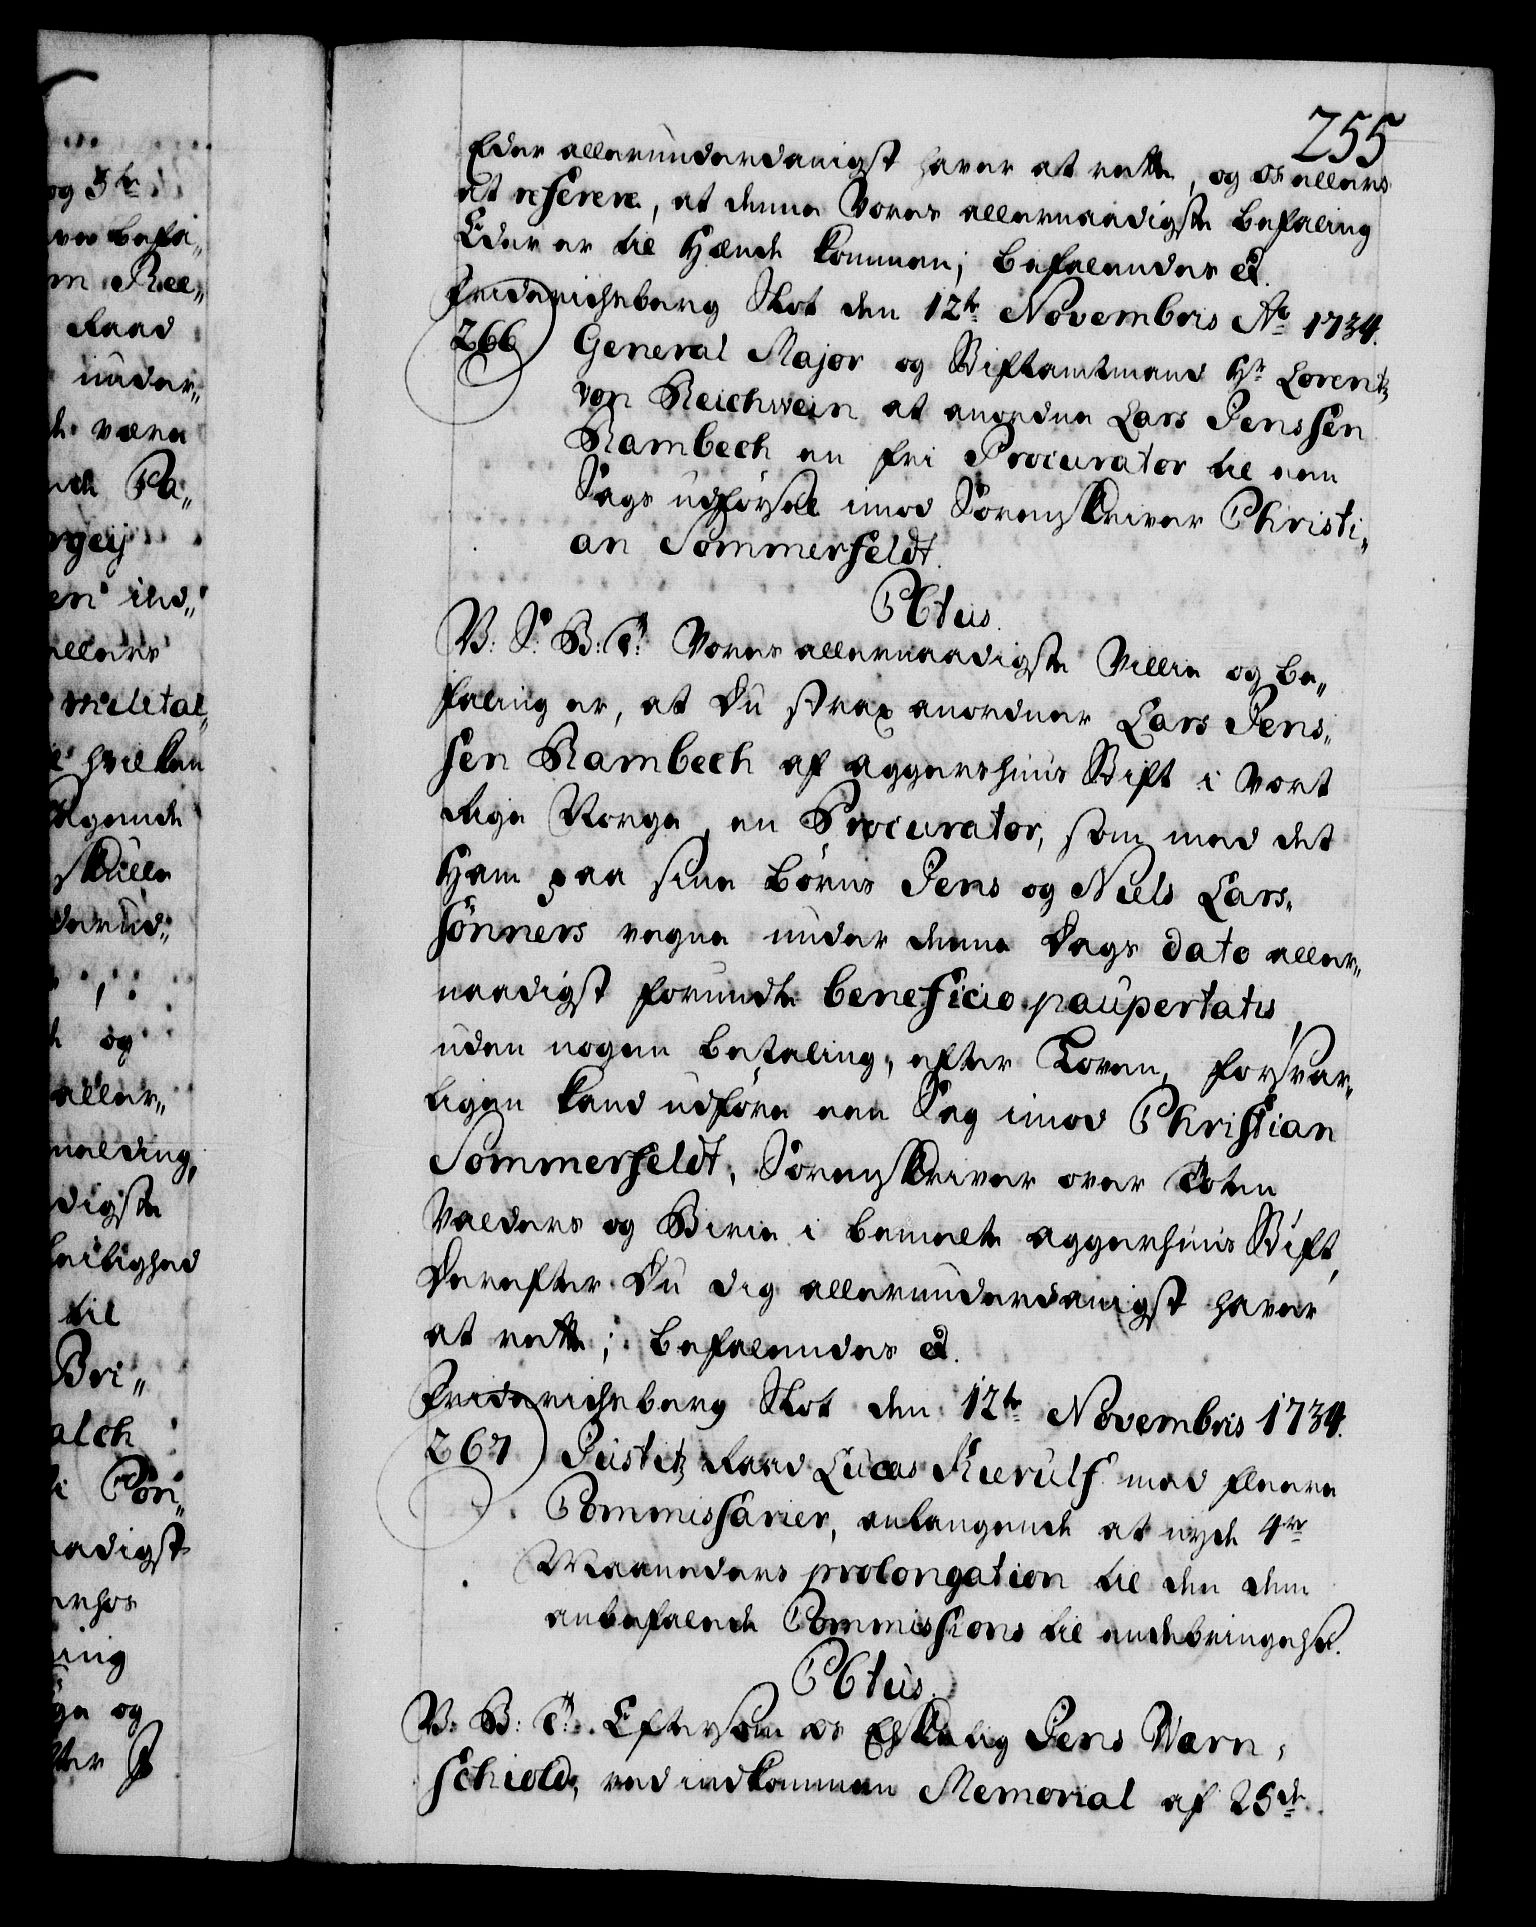 255
Eder allerunderdanigst haver at rette, og os allers
at referere, at denne Vores allernaadigste befaling
Eder er til Hænde kommen; befalendes &.
Friderichsberg Slot den 12te Novembris Ao 1734.
266) General Major og Stiftamtmand Hr Lorentz
von Reichwein at anordne Lars Jenssen
Rambech en fri Procurator til een
Sags udførsel imod Sorenskriver Christi„
an Sommerfeldt.
PCtus.
V: S: B: T: Vores allernaadigste Villie og be„
faling er, at Du strax anordner Lars Jens„
sen Rambech af aggershuus Stift i Vort
Rige Norge, en Procurator, som med det
Ham paa sine børns Jens og Niels Lars„
sønners vegne under denne Dags dato aller„
naadigst forundte beneficio paupertatis,
uden nogen betaling, efter Loven, forsvar„
ligen kand udføre een Sag imod Christian
Sommerfeldt, Sorenskriver over Toten
Valders og Birie i bemelte aggershuus Stift,
Derefter Du dig allerunderdanigst haver
at rette; befalendes &.
Friderichsberg Slot den 12te Novembris 1734.
267) Justitz Raad Lucas Kierulf med fleere
Commissarier, anlangende at nyde 4re
Maaneders prolongation til den dem
anbefalede Commissions til endebringelse.
PCtus.
V: B: T: Eftersom os Elskelig Jens Wærn„
schiold, ved indkommen Memorial af 25de
og 5te
befa„
Ree„
Raad
under„
være
Pa„
ind„
allers
militai„
hvilken
skulle
og
aller„
melding,
digste
leilighed
til
Bri„
alch
i Con„
naadigst
erhos
ning
og